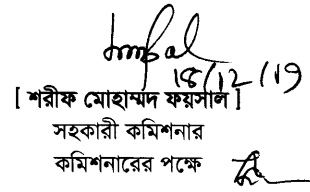 18/12/19
[ শরীফ মোহাম্মদ ফয়সাল ]
সহকারী কমিশনার
কমিশনারের পক্ষে